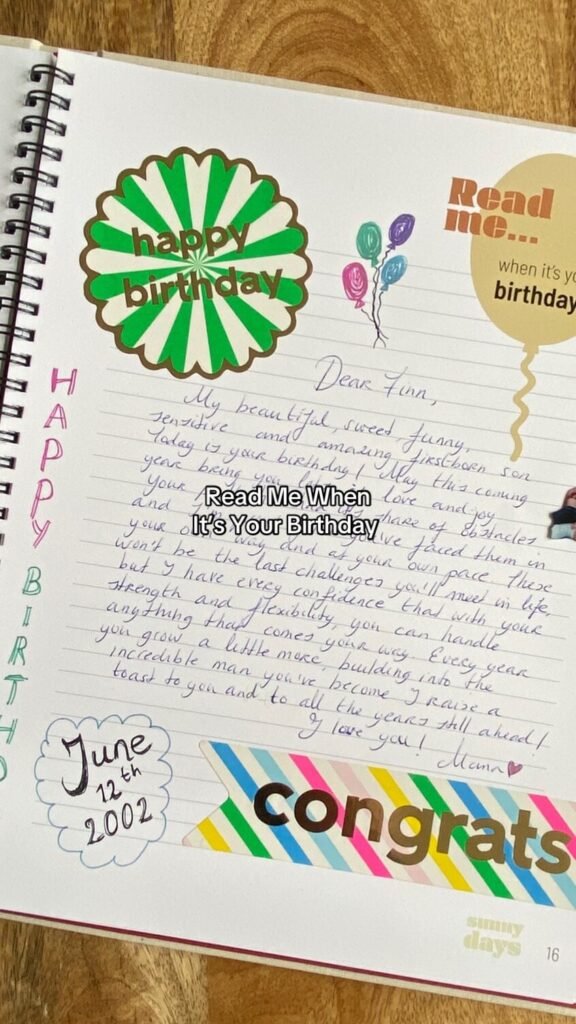 happy
birthday
Read
me...
when it's yo
birthday
HAPPY
BIRTHD
Dear Finn,
My beautiful, sweet, funny,
sensitive and amazing firstborn son
Today is your birthday! May this coming
year bring you lots of love and joy
Your share of obstacles
and you've faced them in
your own way and at your own pace. These
won't be the last challenges you'll meet in life,
but I have every confidence that with your
strength and flexibility, you can handle
anything that comes your way. Every year
you grow a little more, building into the
incredible man you've become. I raise a
toast to you and to all the years still ahead!
I love you! Mama
Read Me When
It's Your Birthday
June
12th
2002
congrats
sunny
days
16